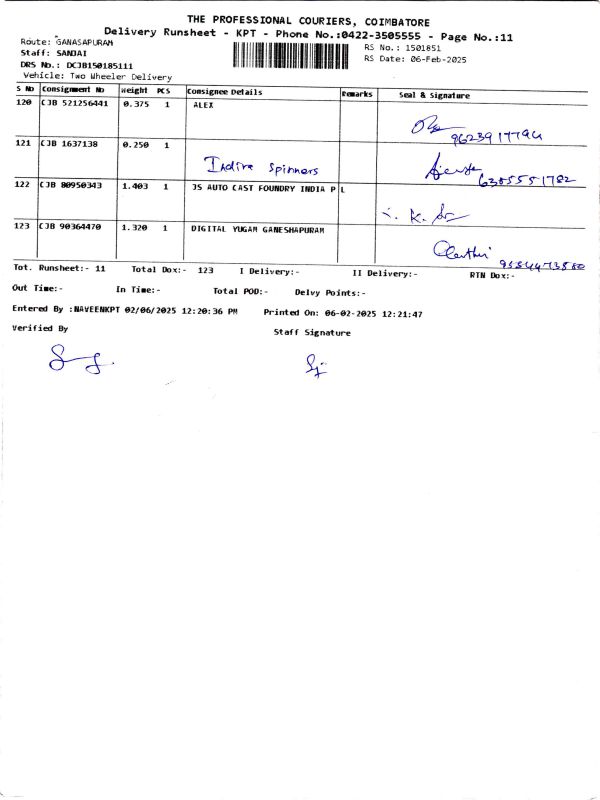 THE PROFESSIONAL COURIERS, COIMBATORE
Delivery Runsheet - KPT - Phone No.:0422-3505555 - Page No.:11
Route: GANASAPURAM
RS No.: 1501851
Staff: SANJAI
RS Date: 06-Feb-2025
DRS No.: DCJB150185111
Vehicle: Two Wheeler Delivery
S No Consignment No Weight PCS Consignee Details Remarks Seal & Signature
120 CJB 521256441 0.375 1 ALEX
121 CJB 1637138 0.250 1
Indire Spinners
6385551782
122 CJB 80950343 1.403 1 JS AUTO CAST FOUNDRY INDIA P L
123 CJB 90364470 1.320 1 DIGITAL YUGAM GANESHAPURAM
Tot. Runsheet:- 11 Total Dox:- 123 I Delivery:- II Delivery:- RTN Dox:-
Out Time:- In Time:- Total POD:- Delvy Points:-
Entered By :NAVEENKPT 02/06/2025 12:20:36 PM Printed On: 06-02-2025 12:21:47
Verified By Staff Signature